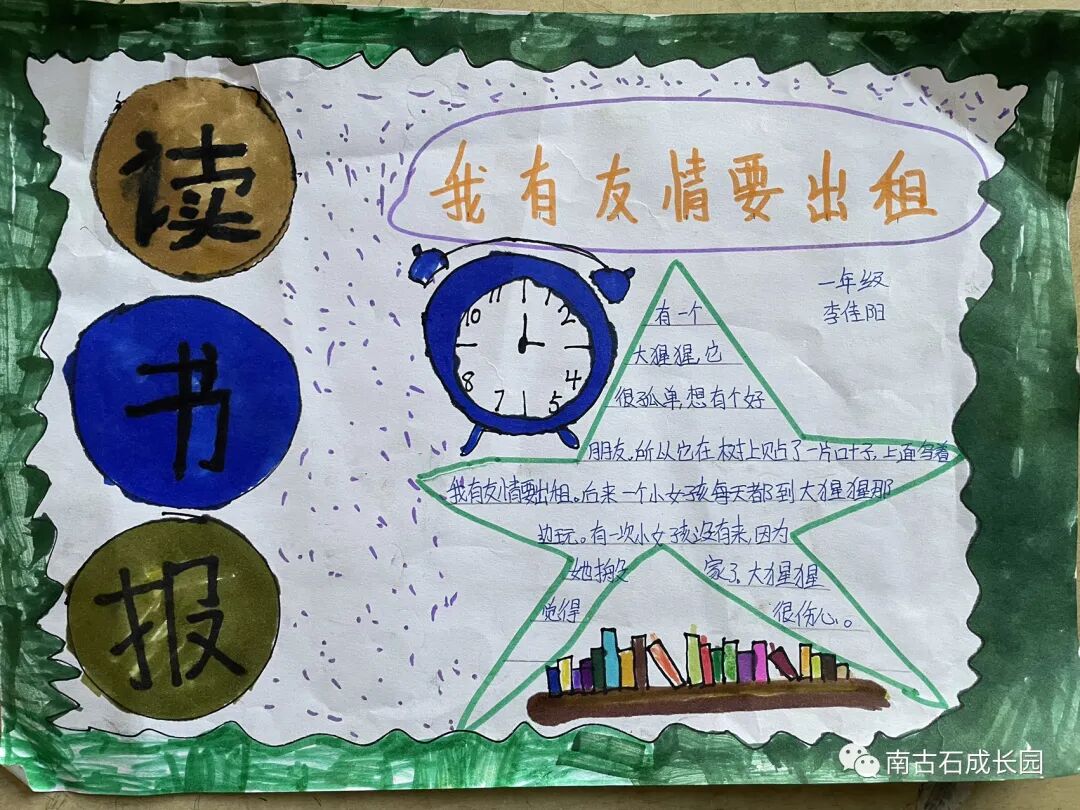 读
书
报
我有友情要出租
一年级
李佳阳
11
10 2
8 4
7 5
有一个
大猩猩,它
很孤单,想有个好
朋友,所以它在树上贴了一片叶子,上面写着
我有友情要出租。后来一个小女孩每天都到大猩猩那
边玩。有一次小女孩没有来,因为
她搬家了,大猩猩
觉得很伤心。
南古石成长园